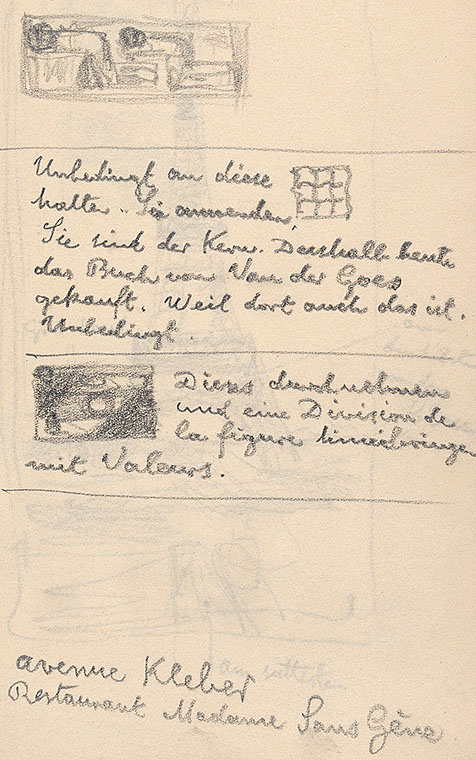 Unbedingt an diese
halten. Sie anwenden,
Sie sind der Kern. Deshalb heute
das Buch von Van der Goes
gekauft. Weil dort auch das ist.
Unbedingt.
Dieses durchnehmen
und eine Division de
la figure hineinbringen
mit Valeurs.
avenue Kleber
Restaurant Madame Sans Gêne